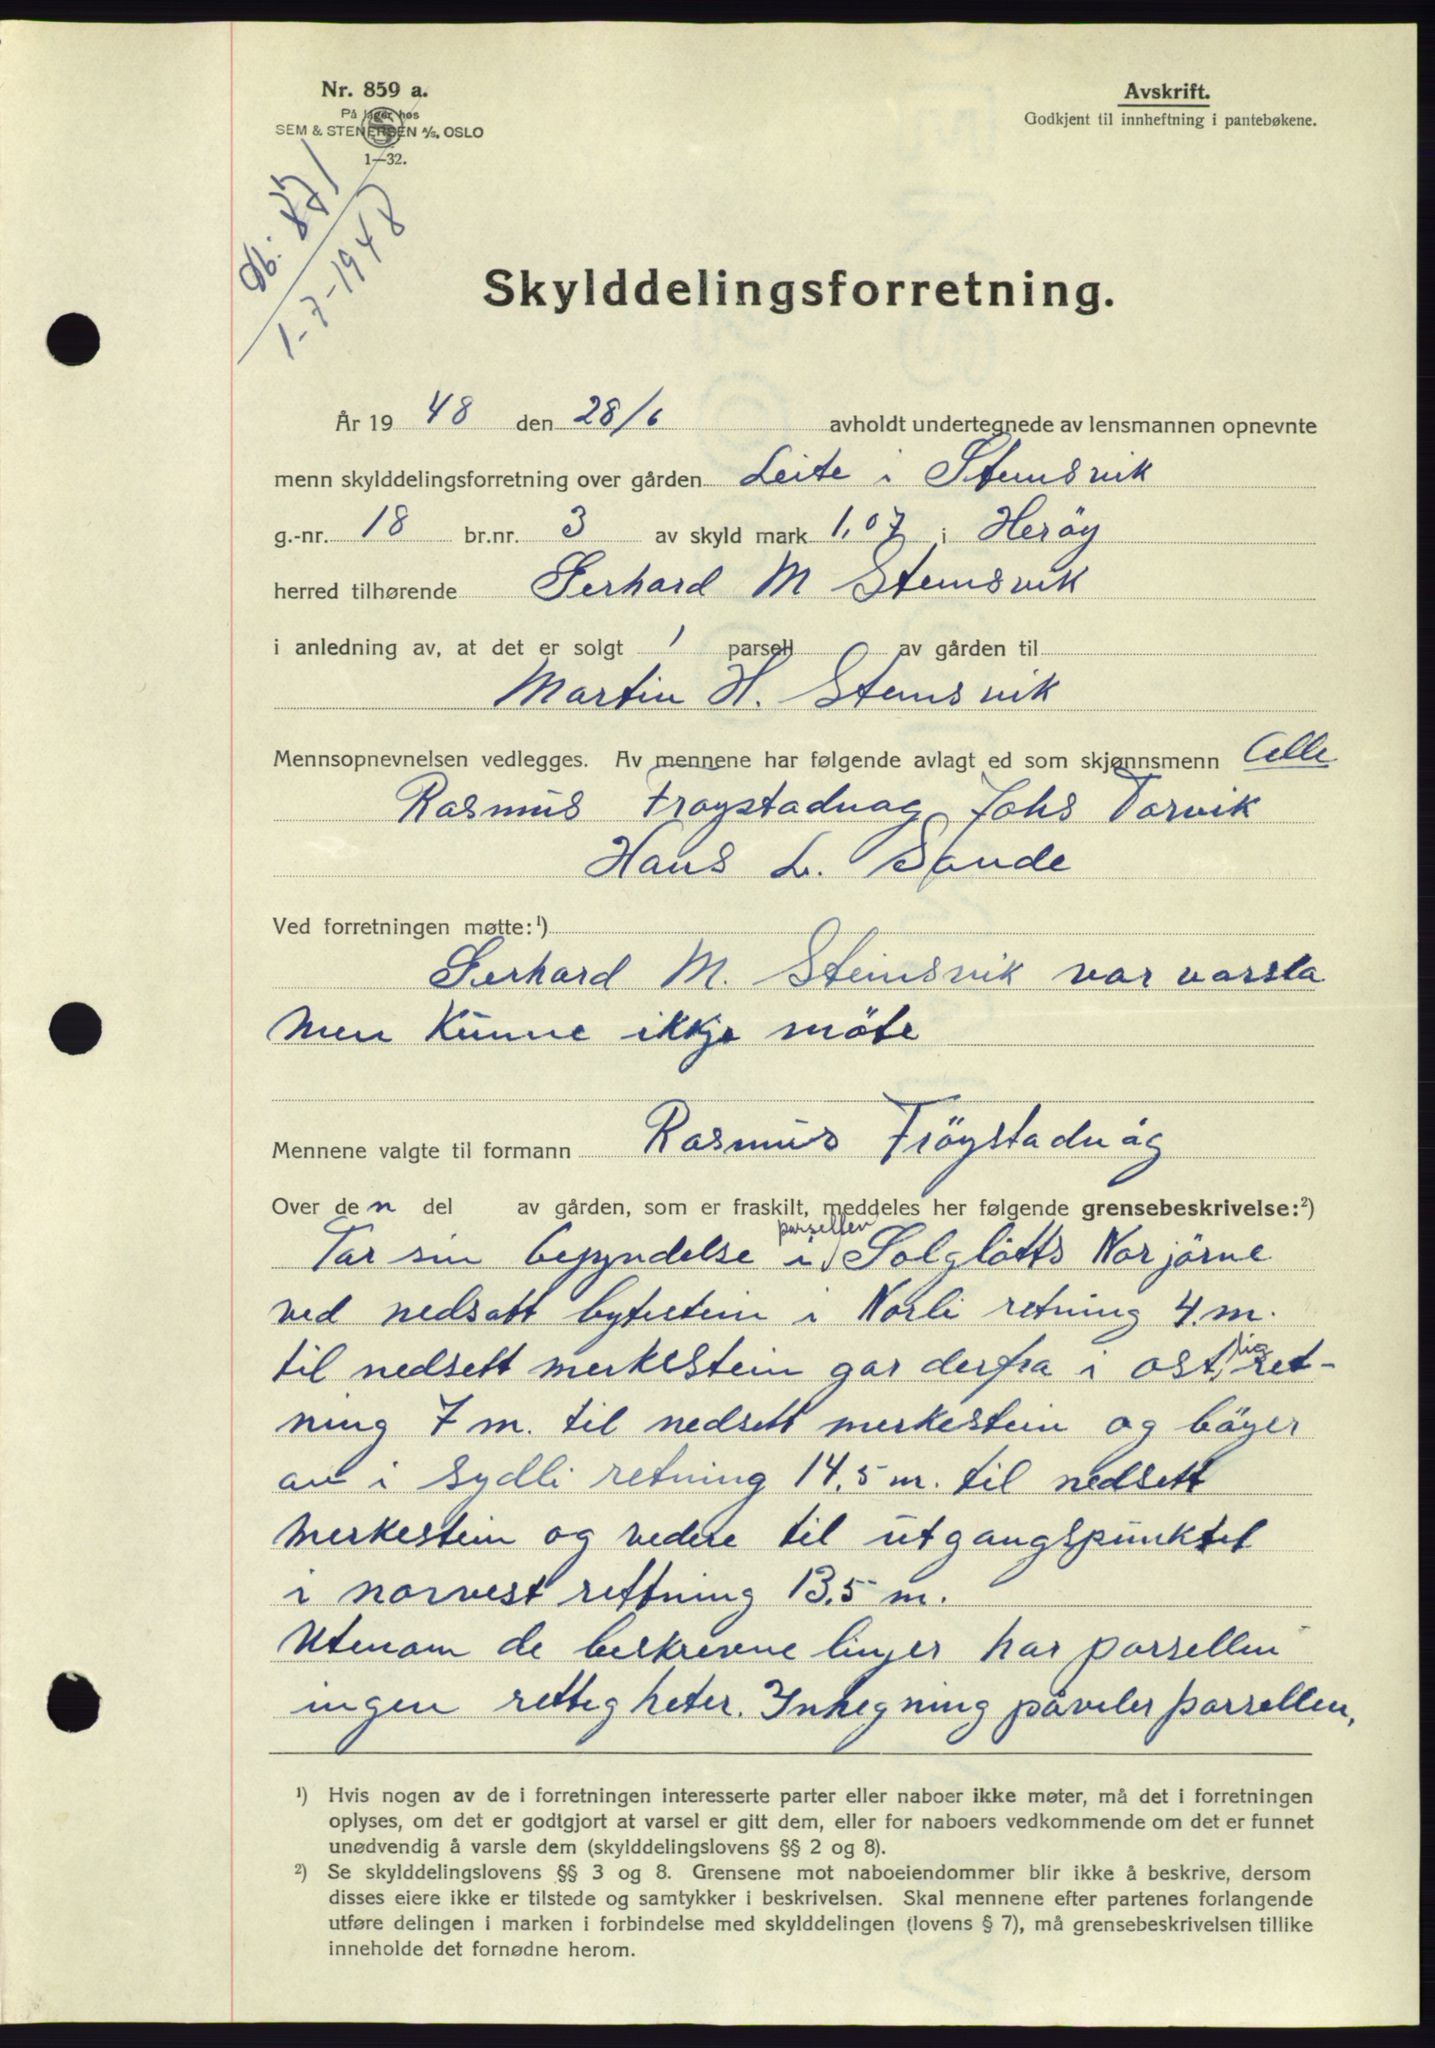 Nr. 859 a.
På lager hos
SEM & STENERSEN A/S, OSLO
1—32.
Avskrift.
Godkjent til innheftning i pantebøkene.
Db: 871
1-7-1948
Skylddelingsforretning.
År 19 48 den 28/6 avholdt undertegnede av lensmannen opnevnte
menn skylddelingsforretning over gården Leite i Steinsvik
g.-nr. 18 br.nr. 3 av skyld mark 1,07 i Herøy
herred tilhørende Gerhard M Steinsvik
i anledning av, at det er solgt 1 parsell av gården til
Martin H. Steinsvik
Mennsopnevnelsen vedlegges. Av mennene har følgende avlagt ed som skjønnsmenn Alle
Rasmus Frøystadvåg Johs Torvik
Hans L. Sande
Ved forretningen møtte:¹)
Gerhard M. Steinsvik var varsla
men kunne ikkje møte
Mennene valgte til formann Rasmus Fröystadvåg
Over den del av gården, som er fraskilt, meddeles her følgende grensebeskrivelse:²)
Tar sin begyndelse i parsellen Solgløtts Norjörne
ved nedsatt bytestein i Norli retning 4. m.
til nedsett merkestein gar derfra i ostlig ret-
ning 7 m. til nedsett merkestein og böyer
av i sydli retning 14,5 m. til nedsett
merkestein og vedere til utgangspunktet
i norvest rettning 13,5 m.
Utenom de beskrevne linjer har parsellen
ingen rettigheter. Inhegning påviler parsellen.
¹) Hvis nogen av de i forretningen interesserte parter eller naboer ikke møter, må det i forretningen
oplyses, om det er godtgjort at varsel er gitt dem, eller for naboers vedkommende om det er funnet
unødvendig å varsle dem (skylddelingslovens §§ 2 og 8).
²) Se skylddelingslovens §§ 3 og 8. Grensene mot naboeiendommer blir ikke å beskrive, dersom
disses eiere ikke er tilstede og samtykker i beskrivelsen. Skal mennene efter partenes forlangende
utføre delingen i marken i forbindelse med skylddelingen (lovens § 7), må grensebeskrivelsen tillike
inneholde det fornødne herom.